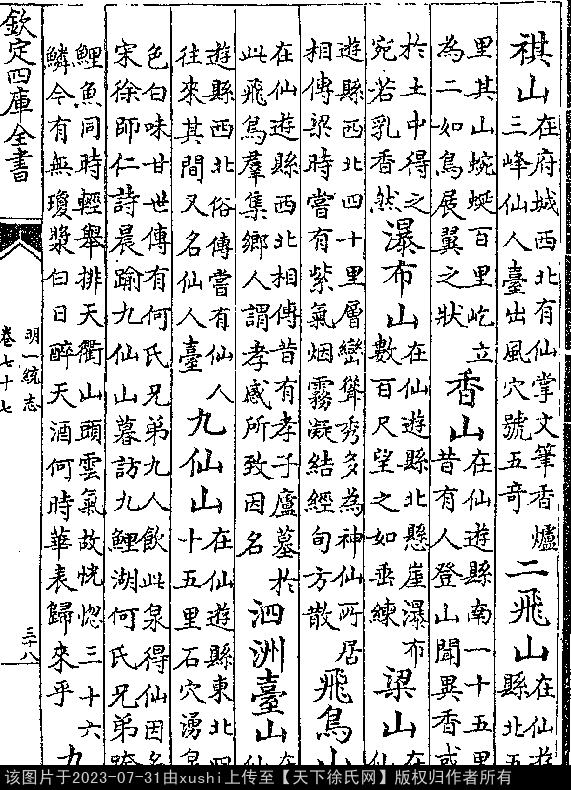 祺山在府城西北有仙掌文筆香爐三峰仙人臺出風穴號五奇二飛山在仙遊縣北五
里其山蜿蜒百里屹立為二如鳥展翼之狀香山在仙遊縣南一十五里昔有人登山聞異香或
於土中得之宛若乳香然瀑布山在仙遊縣北懸崖瀑布數百尺望之如垂練梁山在仙
遊縣西北四十里層巒聳秀多為神仙所居相傳梁時嘗有紫氣烟霧凝結經旬方散飛鳥山
在仙遊縣西北相傳昔有孝子廬墓於此飛鳥羣集鄉人謂孝感所致因名泗洲臺山在
遊縣西北俗傳嘗有仙人往來其間又名仙人臺九仙山在仙遊縣東北四十五里石穴湧泉
色白味甘世傳有何氏兄弟九人飲此泉得仙因名宋徐師仁詩晨踰九仙山暮訪九鯉湖何氏兄弟跨
鯉魚同時輕舉排天衢山頭雲氣故恍惚三十六鱗今有無瓊漿白日醉天酒何時華表歸來乎九
欽定四庫全書
明一統志
卷七十七
三十八
该图片于2023-07-31由xushi上传至【天下徐氏网】版权归作者所有